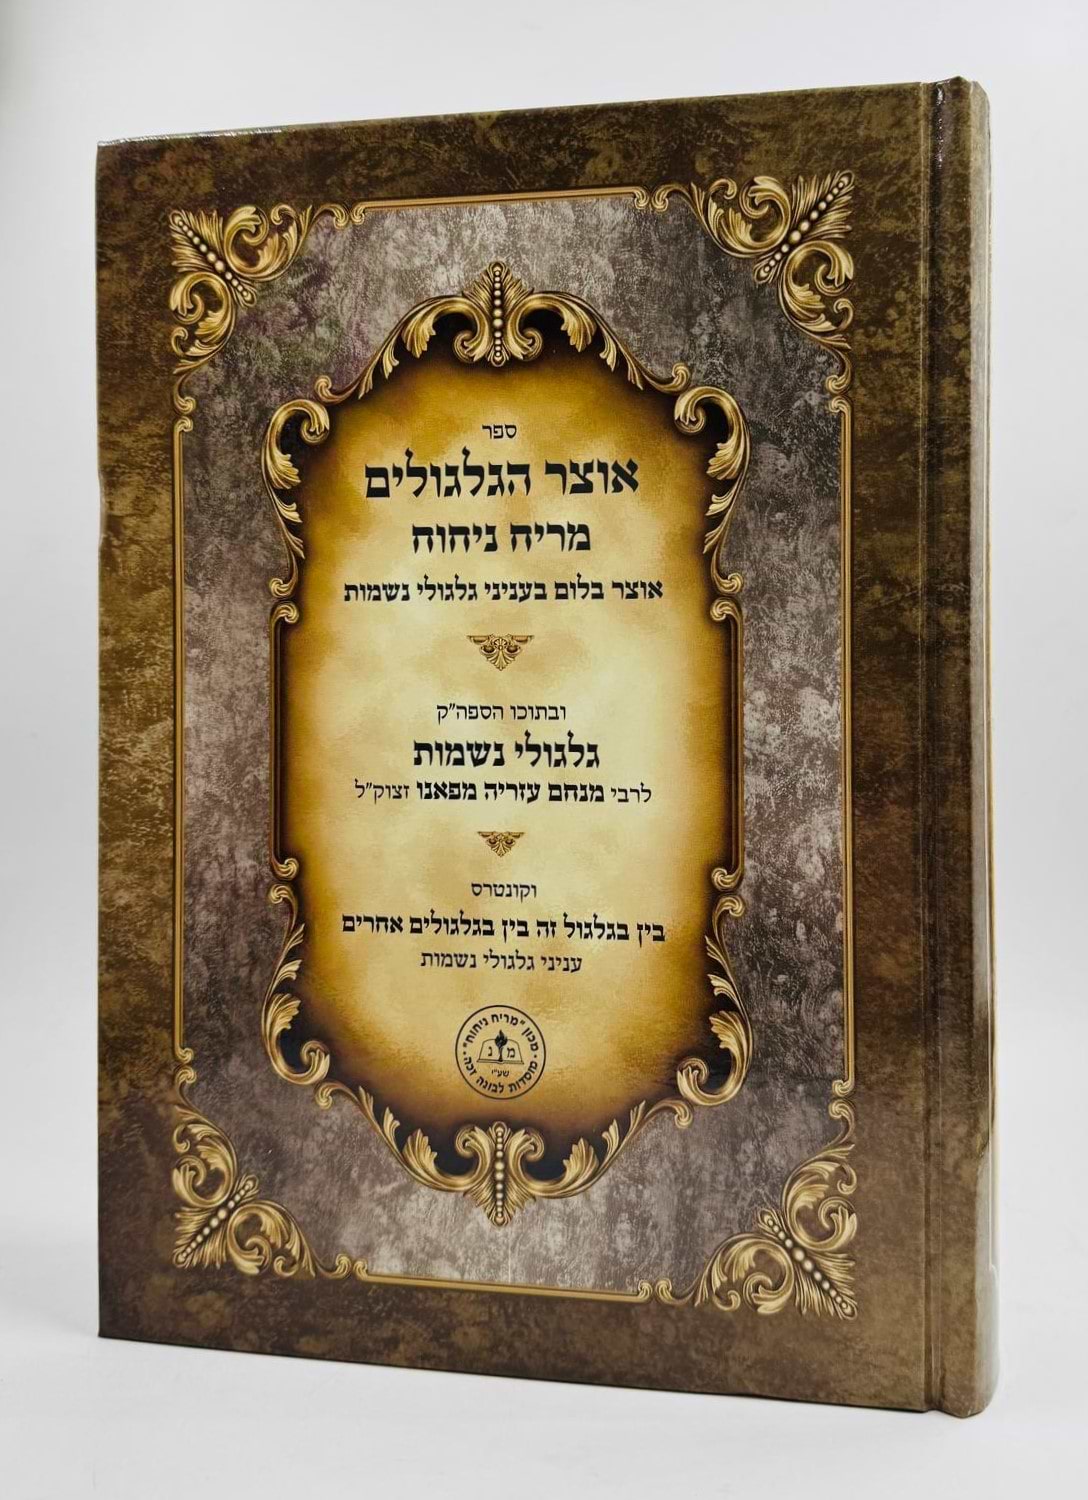 ספר
אוצר הגלגולים
מריח ניחוח
אוצר בלום בעניני גלגולי נשמות
ובתוכו הספה"ק
גלגולי נשמות
לרבי מנחם עזריה מפאנו זצוק"ל
וקונטרס
בין בגלגול זה בין בגלגולים אחרים
עניני גלגולי נשמות
מכון "מריח ניחוח"
מ נ
שע"י
מוסדות לבונה זכה